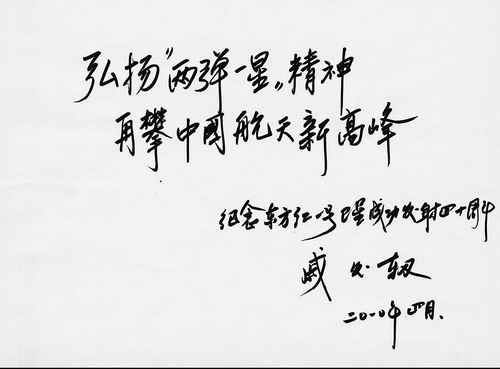 弘扬“两弹一星”精神
再攀中国航天新高峰
纪念东方红一号卫星成功发射四十周年
戚发轫
二〇一〇年四月.